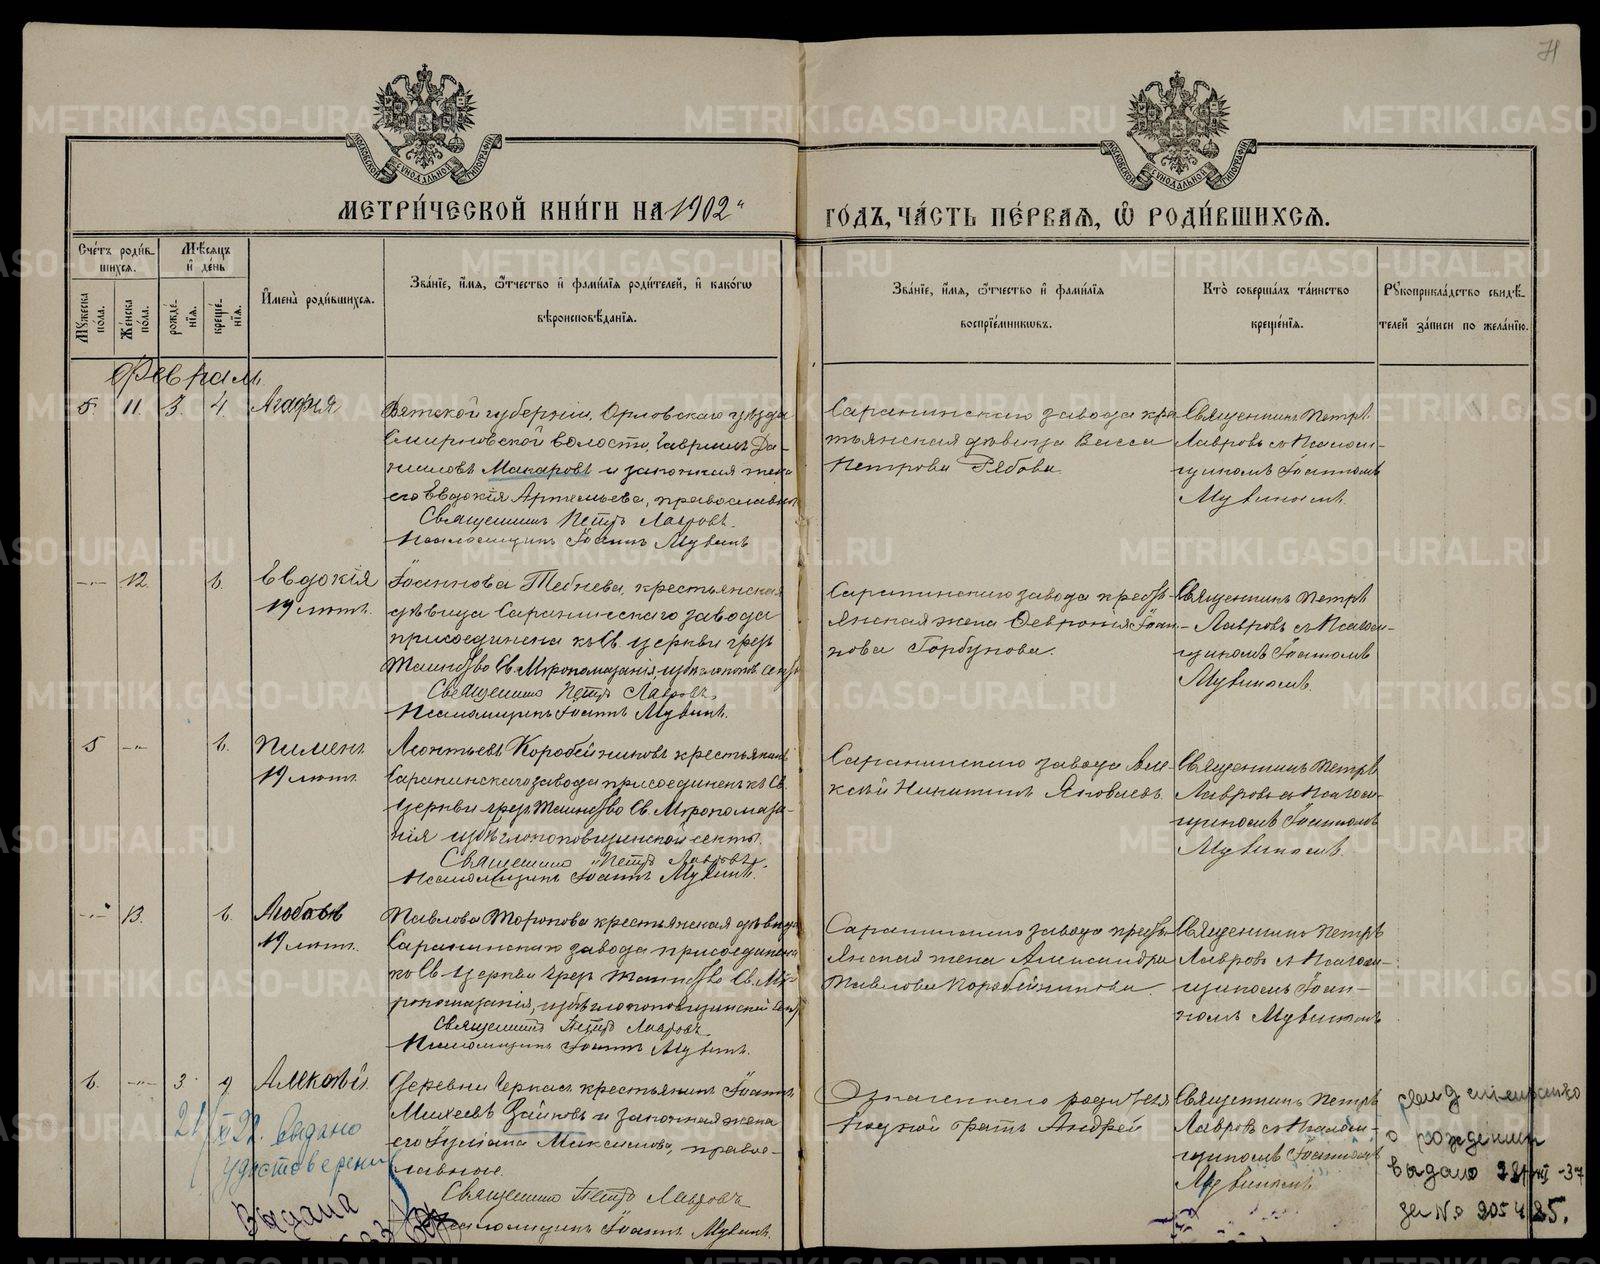 МЕТРИ́ЧЕСКОЙ КНИ́ГИ НА 1902"
ГО́ДЪ, ЧА́СТЬ ПЕ́РВАѦ, Ѡ҆ РОДИ́ВШИХСѦ.
Сче́тъ роди́в-
шихсѧ.
Мѣсѧцъ
и҆ де́нь
Мꙋжеска по́ла.
Же́нска по́ла.
рожде́-
нїѧ.
креще́-
нїѧ.
И҆мена̀ роди́вшихсѧ.
Зва́нїе, и҆́мѧ, ѻ҆́тчество и҆ фами́лїѧ роди́телей, и҆ како́гѡ
вѣроисповѣ́данїѧ.
Зва́нїе, и҆́мѧ, ѻ҆́тчество и҆ фами́лїѧ
воспрїе́мникѡвъ.
Кто̀ соверша́лъ та́инство
креще́нїѧ.
Рꙋкоприкла́дство свидѣ́-
телей за́писи по жела́нїю.
Февраль
5. 11. 3. 4. Агафія
Вятской губерніи, Орловскаго уѣзда
Смирновской волости, Гавріилъ Да-
ниловъ Макаровъ и законная жена
его Евдокія Артемьева, православн
Священникъ Петръ Лавровъ.
Псаломщикъ Іоаннъ Мувинъ
Саранинскаго завода кре
тьянская дѣвица Васса
Петрова Рябова.
Священникъ Петръ
Лавровъ съ Псалом-
щикомъ Іоанномъ
Мувинымъ
12. 6. Евдокія
19 лѣтъ.
Іоаннова Тебнева, крестьянская
дѣвица Саранинскаго завода
присоединена къ Св. церкви чрезъ
Таинство Св. Мѵропомазанія
Священникъ Петръ Лавровъ
Псаломщикъ Іоаннъ Мувинъ.
Саранинскаго завода крест-
янская жена Февронія Іоан-
нова Горбунова.
Священникъ Петръ
Лавровъ съ Псалом-
щикомъ Іоанномъ
Мувинымъ.
5 6. Пименъ
19 лѣтъ.
Леонтьевъ Коробейниковъ крестьянинъ
Саранинскаго завода присоединенъ къ Св.
Церкви чрезъ Таинство Св. Мѵропомаза-
нія изъ бѣглопоповщинской секты.
Священникъ Петръ Лавровъ
Псаломщикъ Іоаннъ Мувинъ.
Саранинскаго завода Але-
ксѣй Никитинъ Яковлевъ
Священникъ Петръ
Лавровъ съ Псалом-
щикомъ Іоанномъ
Мувинымъ.
13. 6. Любовь
19 лѣтъ.
Павлова Торопова крестьянская дѣвица
Саранинскаго завода присоединена
къ Св. Церкви чрезъ Таинство Св. Мѵ-
ропомазанія, изъ бѣглопоповщинской
Священникъ Петръ Лавровъ
Псаломщикъ Іоаннъ Мувинъ.
Саранинскаго завода крестья
янская жена Александра
Павлова Коробейникова.
Священникъ Петръ
Лавровъ съ Псалом-
щикомъ Іоан-
номъ Мувинымъ
6. 3. 9 Алексѣй.
Деревни Черкасъ крестьянинъ Іоаннъ
Михеевъ Зайковъ и законная жена
его Іуліана Максимова, право-
славные.
Священникъ Петръ Лавровъ
Псаломщикъ Іоаннъ Мувинъ.
Означеннаго родителя
родной братъ Андрей
Священникъ Петръ
Лавровъ съ Псалом-
щикомъ Іоанномъ
Мувинымъ
21/XI 22. Выдано
удостоверени
Выдана
о рождении
выдано
за №